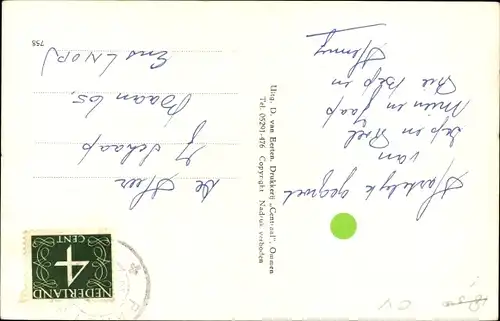 Hartelijk gegroet
van
Bep en Roel
Mien en Jaap
Rie Bep en
Henny
Uitg. D. van Eerten. Drukkerij „Centraal”. Ommen
Tel. 05291-476 Copyright Nadruk verboden
De Heer
J. Schaap
Baan 65,
Ens (NOP)
758
4
CENT
NEDERLAND
CV